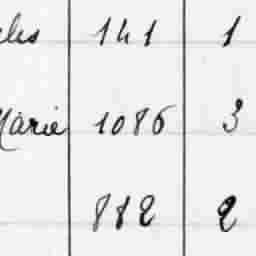 141 1
Marie 1086 3
882 2